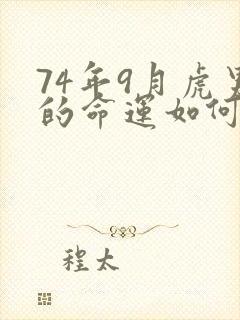 74年9月虎男
的命运如何
程太